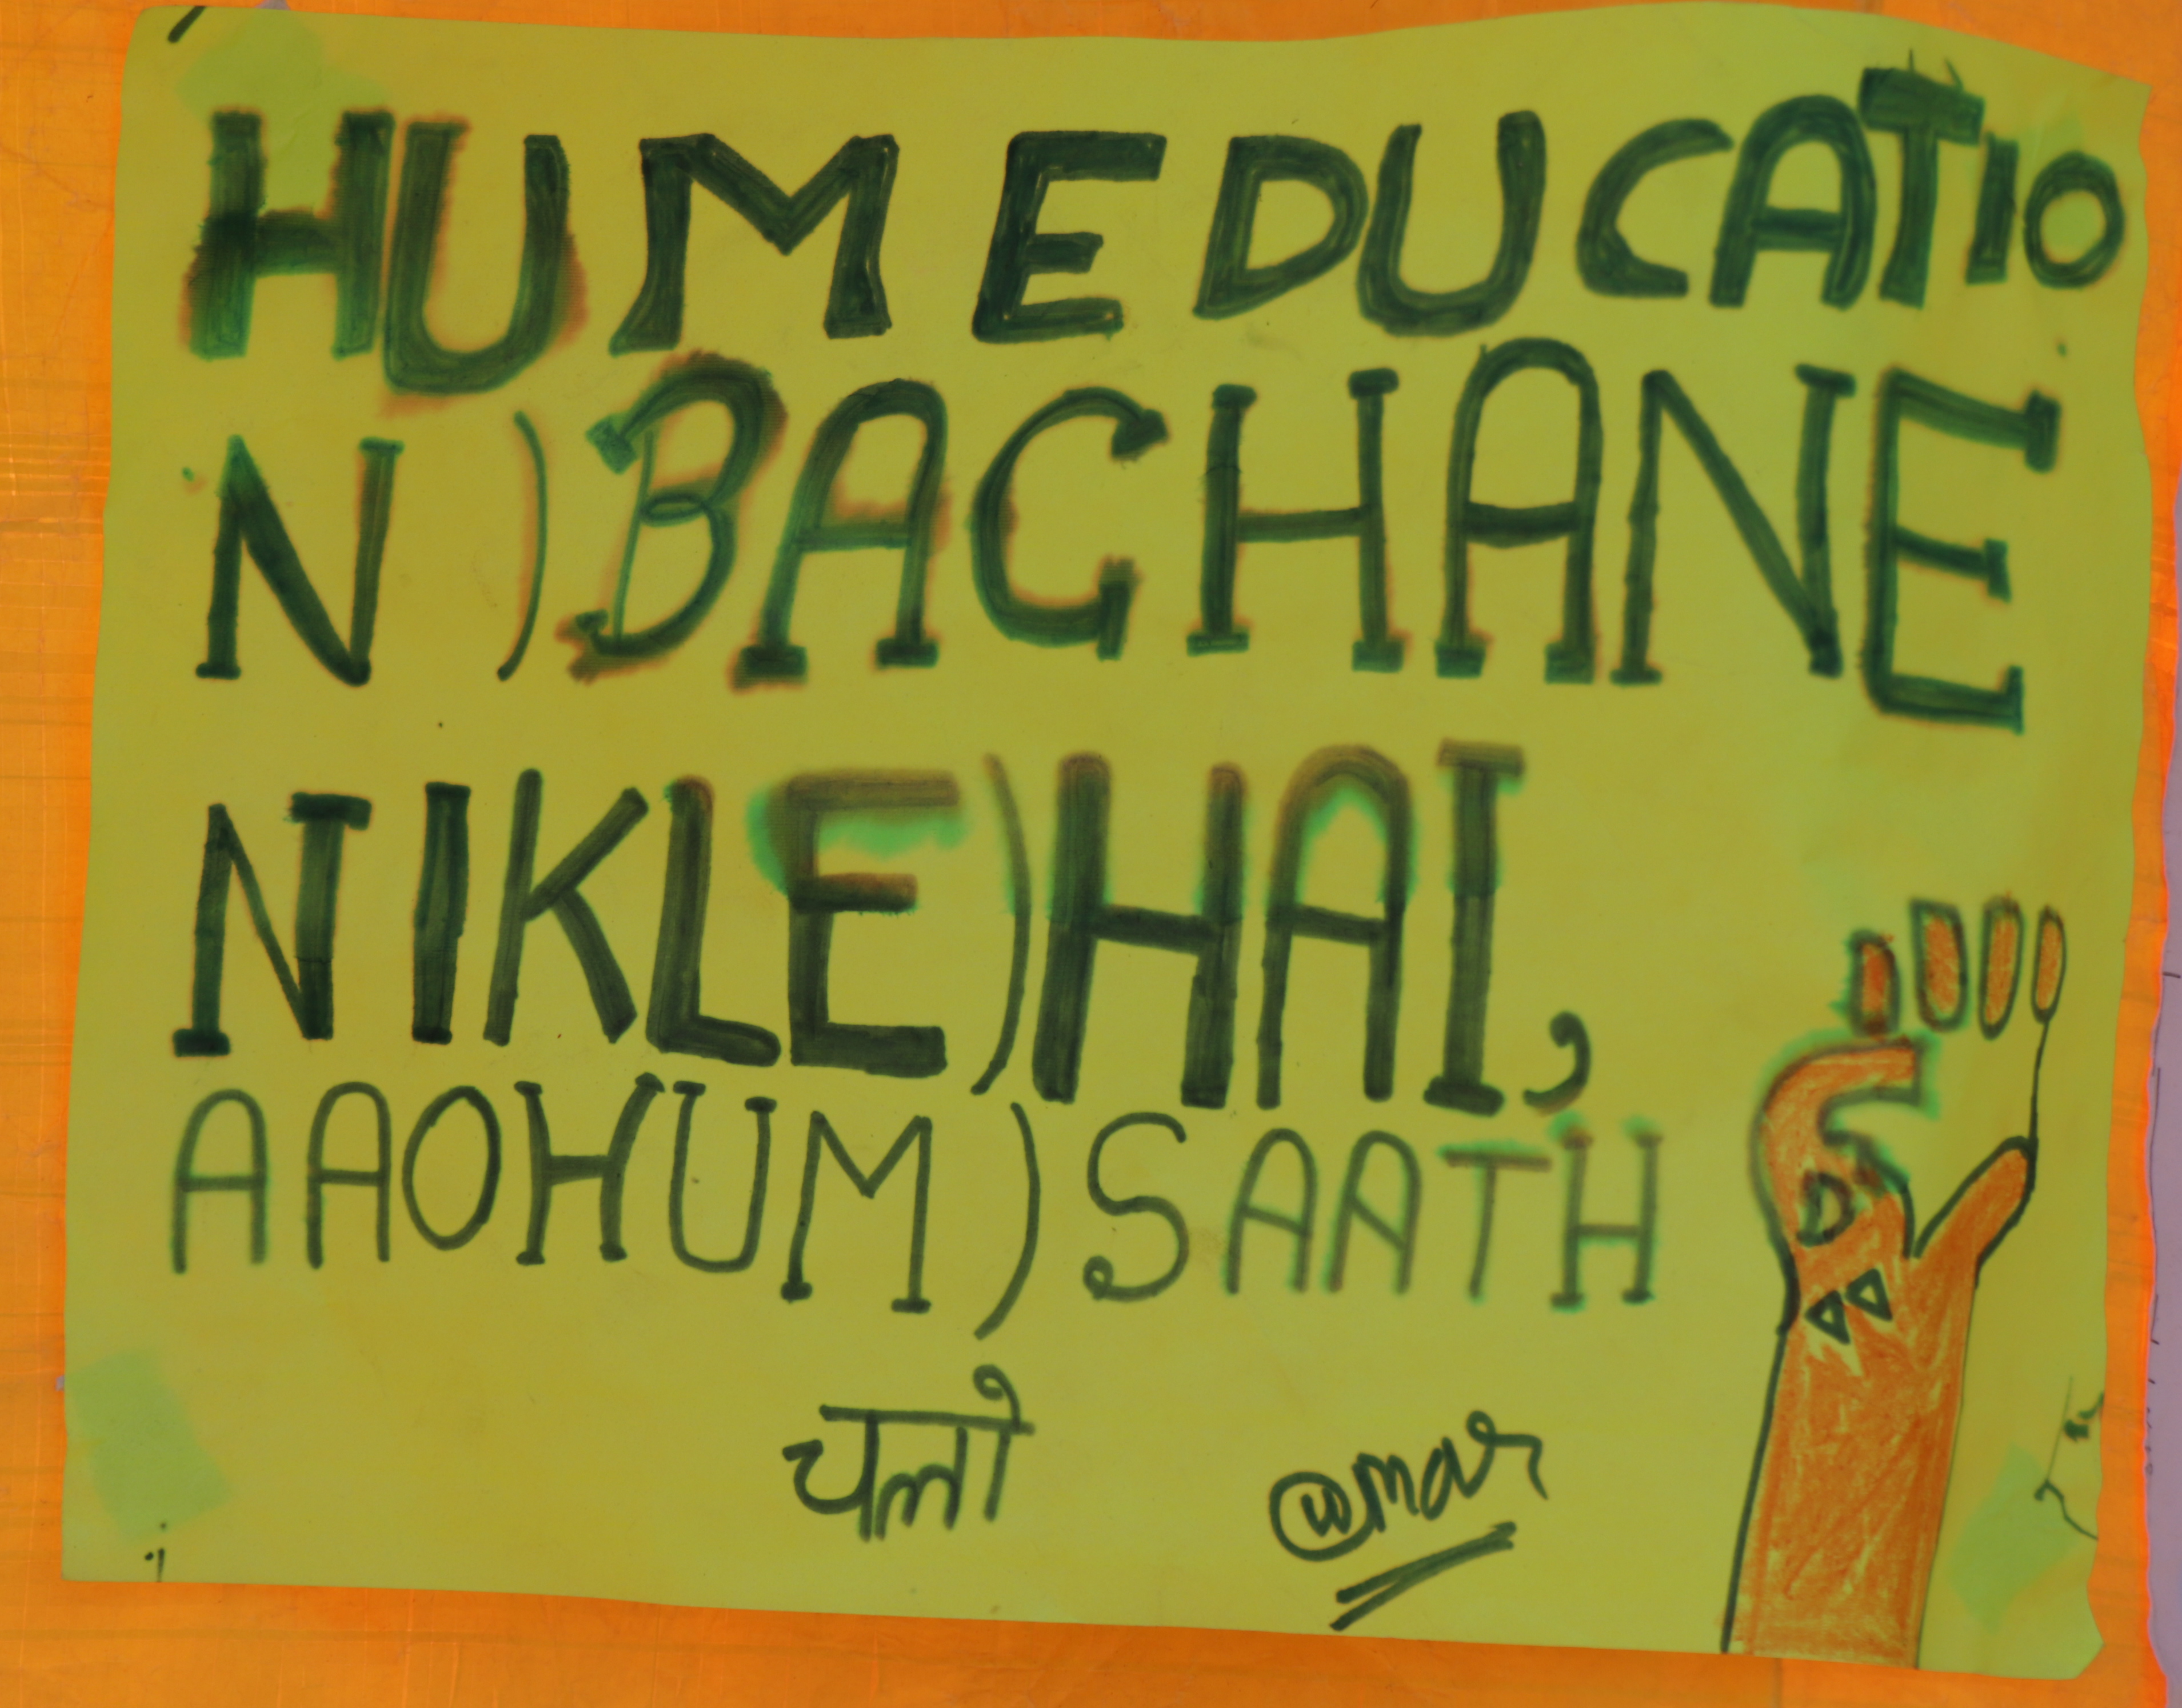 HUM EDUCATIO
N ) BACHANE
NIKLE ) HAI,
AAO HUM ) SAATH
चलो
@mar